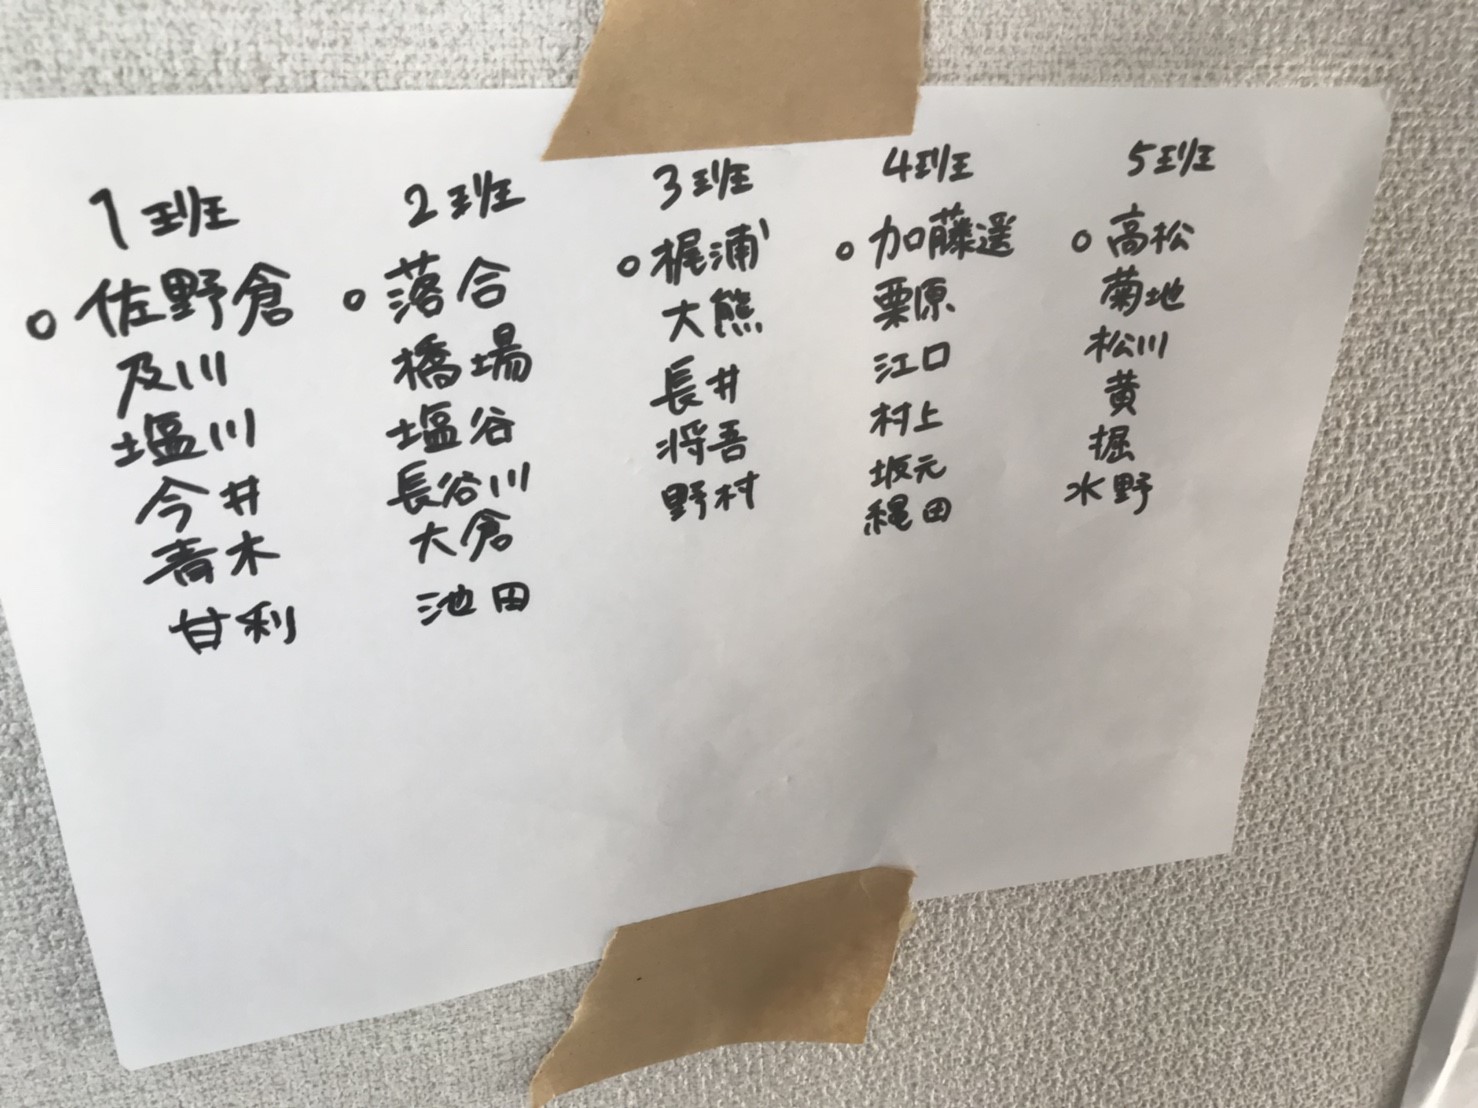 1班
○佐野倉
及川
塩川
今井
青木
甘利
2班
○落合
橋場
塩谷
長谷川
大倉
池田
3班
○梶浦
大熊
長井
将吾
野村
4班
○加藤遥
栗原
江口
村上
坂元
縄田
5班
○高松
菊地
松川
黄
堀
水野